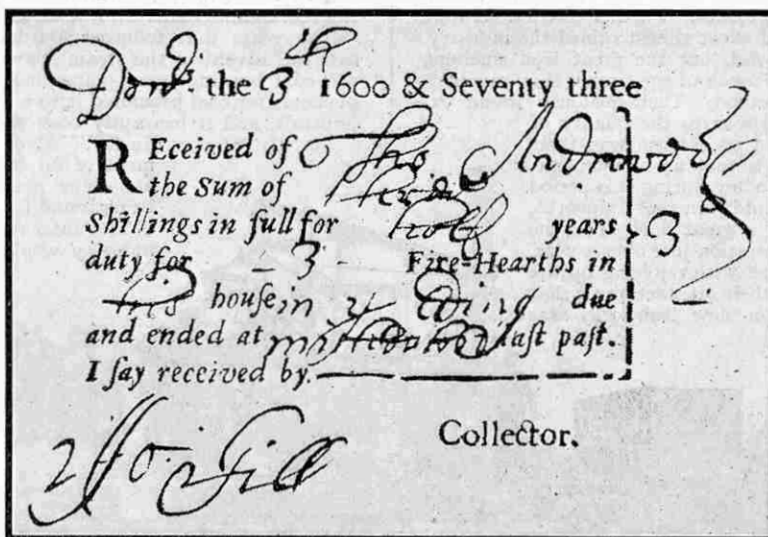 the 3th 1600 & Seventy three
REceived of Tho Andrewes
the Sum of three
Shillings in full for half years 3s
duty for 3 Fire-Hearths in
his houſe, in due
and ended at laſt paſt.
I ſay received by.
Collector.
Gill